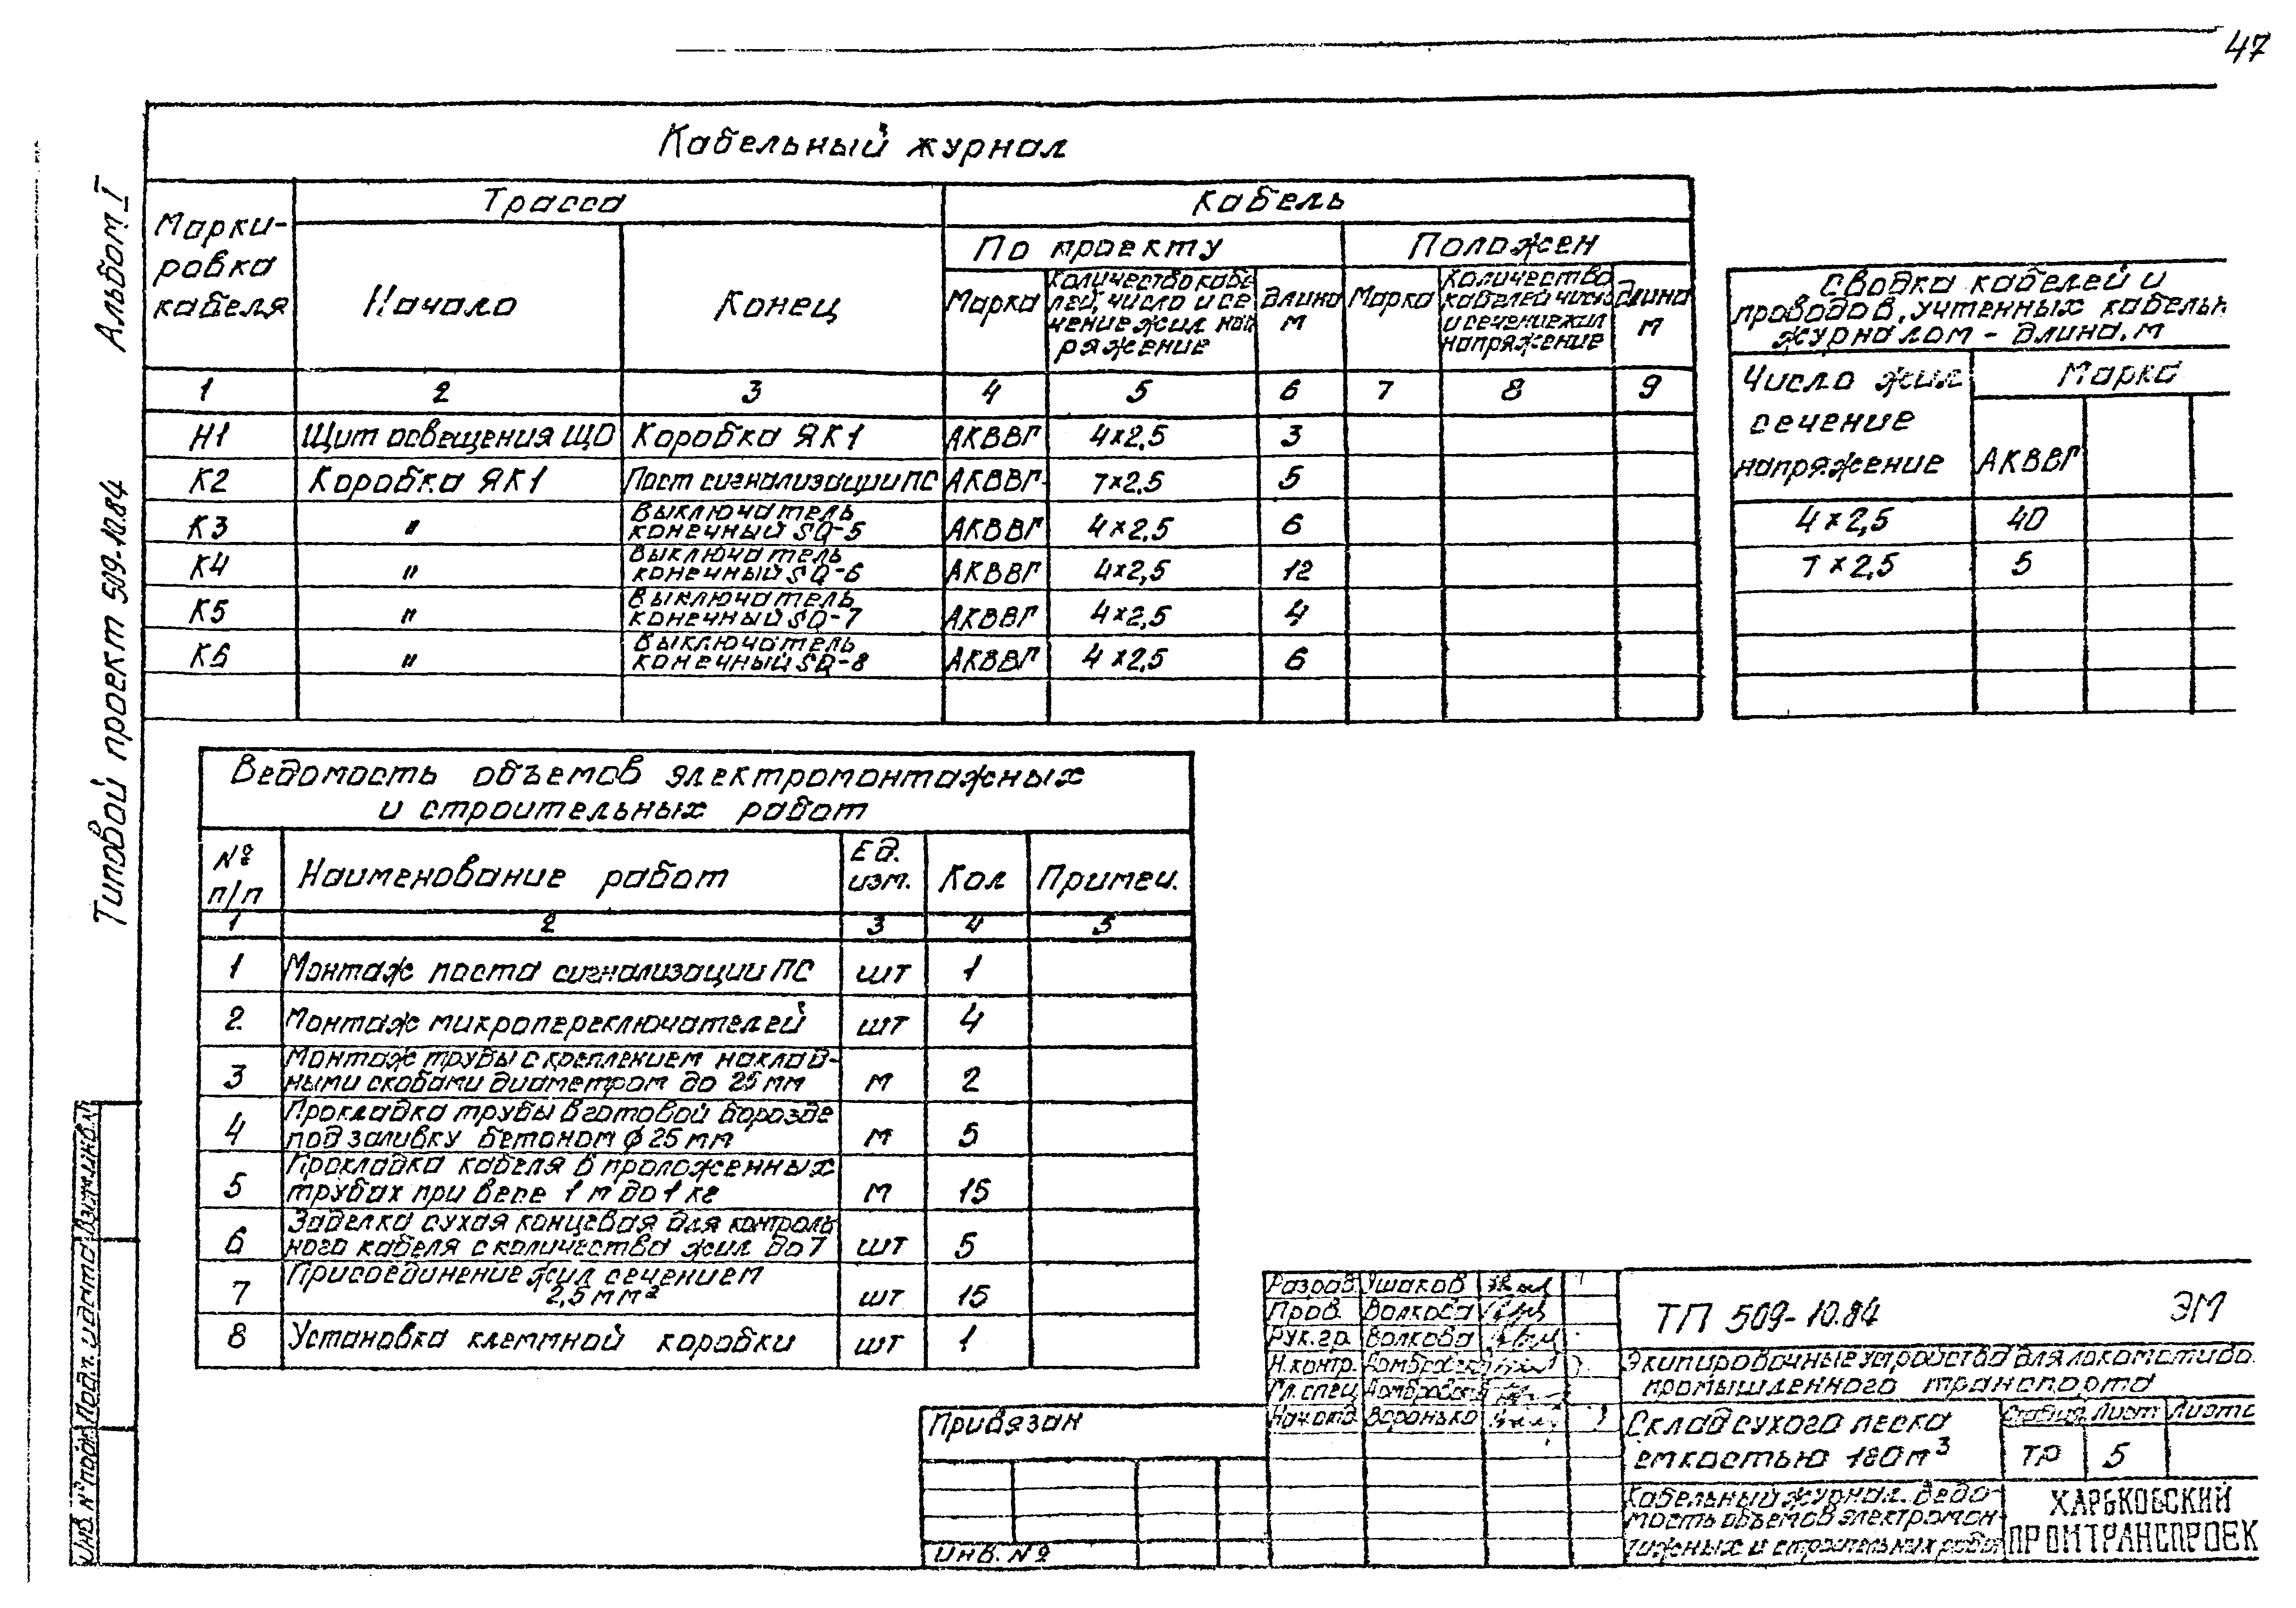 47
Альбом I
Типовой проект 509-10.84
Кабельный журнал
Марки-
ровка
кабеля
Трасса
Кабель
По проекту
Положен
Начало
Конец
Марка
Количество кабе-
лей, число и се
чение жил нап
ряжение
Длина
м
Марка
Количество
кабелей число
и сечение жил
напряжение
Длина
м
1 2 3 4 5 6 7 8 9
Н1 Щит освещения ЩО Коробка ЯК1 АКВВГ 4×2,5 3
К2 Коробка ЯК1 Пост сигнализации ПС АКВВГ 7×2,5 5
К3 " Выключатель
конечный SQ-5 АКВВГ 4×2,5 6
К4 " Выключатель
конечный SQ-6 АКВВГ 4×2,5 12
К5 " Выключатель
конечный SQ-7 АКВВГ 4×2,5 4
К6 " Выключатель
конечный SQ-8 АКВВГ 4×2,5 6
Сводка кабелей и
проводов, учтенных кабельн
журналом - длина, м
Число жил
сечение
напряжение
Марка
АКВВГ
4×2,5 40
7×2,5 5
Ведомость объемов электромонтажных
и строительных работ
№
п/п
Наименование работ
Ед.
изм.
Кол
Примеч.
1 2 3 4 5
1 Монтаж поста сигнализации ПС шт 1
2 Монтаж микропереключателей шт 4
3 Монтаж трубы с креплением наклад-
ными скобами диаметром до 25 мм м 2
4 Прокладка трубы в готовой борозде
под заливку бетоном ϕ 25 мм м 5
5 Прокладка кабеля в проложенных
трубах при весе 1 м до 1 кг м 15
6 Заделка сухая концевая для контроль
ного кабеля с количества жил до 7 шт 5
7 Присоединение жил сечением
2,5 мм² шт 15
8 Установка клеммной коробки шт 1
Инв. № подл. Подп. и дата Взам.инв.№
Привязан
Инв. №
Разраб. Ушаков
Пров. Волкова
Рук.гр. Волкова
Н.контр. Домбровск
Гл.спец Домбровск
Нач.отд. Воронько
ТП 509-10.84 ЭМ
Экипировочные устройства для локомотиво
промышленного транспорта
Склад сухого песка
емкостью 180 м³
Стадия Лист Листо
ТР 5
Кабельный журнал. Ведо-
мость объемов электромон-
тажных и строительных работ
ХАРЬКОВСКИЙ
ПРОМТРАНСПРОЕК